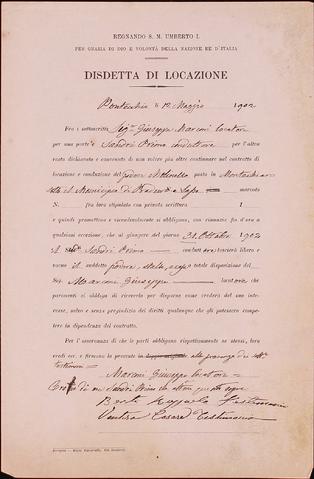 REGNANDO S. M. UMBERTO I.
PER GRAZIA DI DIO E VOLONTÀ DELLA NAZIONE RE D'ITALIA
DISDETTA DI LOCAZIONE
Pontecchio li 12 Maggio 1902
Fra i sottoscritti Sig. Giuseppe Marconi locatore
per una parte e Sandri Primo conduttore per l'altra
resta dichiarato e convenuto di non volere più oltre continuare nel contratto di
locazione e conduzione del podere Molinello posto in
sotto il Municipio di Praduro e Sasso marcato
N. fra loro stipulato con privata scrittura 1
e quindi promettono e vicendevolmente si obbligano, con rinunzia fin d'ora a
qualsiasi eccezione, che al giungere del giorno 31 Ottobre 1902
il Sandri Primo conduttore lascierà libero e
vuoto il suddetto podere, stalla, ecc. a totale disposizione del
Sig. Marconi Giuseppe locatore che
parimenti si obbliga di riceverlo per disporne come crederà del suo inte-
resse, salvo e senza pregiudizio dei diritti qualunque che gli potessero compe-
tere in dipendenza del contratto.
Per l'osservanza di che le parti obbligano rispettivamente se stessi, loro
eredi ecc. e firmano la presente alla presenza di
testimoni
Marconi Giuseppe locatore
Croce di me Sandri Primo
Testimonio
Cesare Testimonio